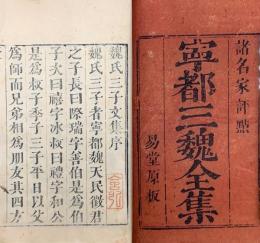 諸名家評點
寧都三魏全集
易堂原板
魏氏三子文集序
魏氏三子者寧都魏天民徵君
之子長曰際瑞字善伯是為伯
子次曰禧字冰叔曰禮字和公
是為叔子季子三子平日以父
為師而兄弟相為朋友其四方